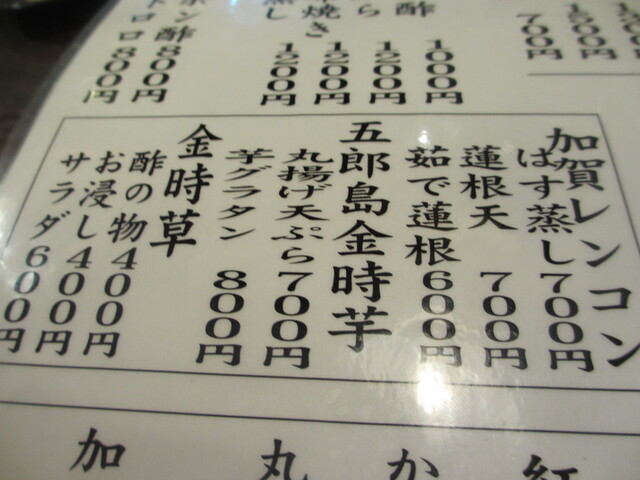 700円
酢 1000円
ら 1200円
焼き 1200円
蒸し 1200円
ポン酢 800円
トロロ 800円
加賀レンコン
はす蒸し 700円
蓮根天 700円
茹で蓮根 600円
五郎島金時芋
丸揚げ天ぷら 700円
芋グラタン 800円
金時草
酢の物 400円
お浸し 400円
サラダ 600円
紅
か
丸
加